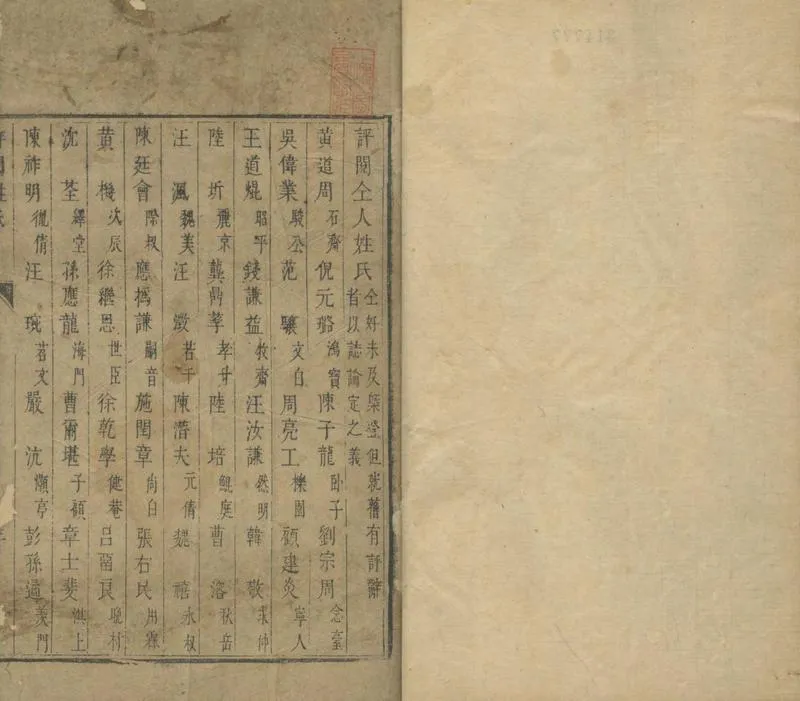 評閱仝人姓氏 仝好未及槩登但就舊有評辭者以誌論定之義
黃道周 石齋 倪元璐 鴻寶 陳子龍 臥子 劉宗周 念臺
吳偉業 駿公 范驤 文白 周亮工 櫟園 顧建炎 寧人
王道焜 昭平 錢謙益 牧齋 汪汝謙 然明 韓敬 求仲
陸圻 麗京 龔鼎孳 孝升 陸培 鯤庭 曹溶 秋岳
汪渢 魏美 汪澂 若千 陳潛夫 元倩 魏禧 永叔
陳廷會 際叔 應撝謙 嗣音 施閏章 尚白 張右民 用霖
黃機 次辰 徐繼恩 世臣 徐乾學 健菴 呂留良 晚村
沈荃 繹堂 孫應龍 海門 曹爾堪 子顧 章士斐 淇上
陳祚明 胤倩 汪琬 苕文 嚴沆 灝亭 彭孫遹 羡門